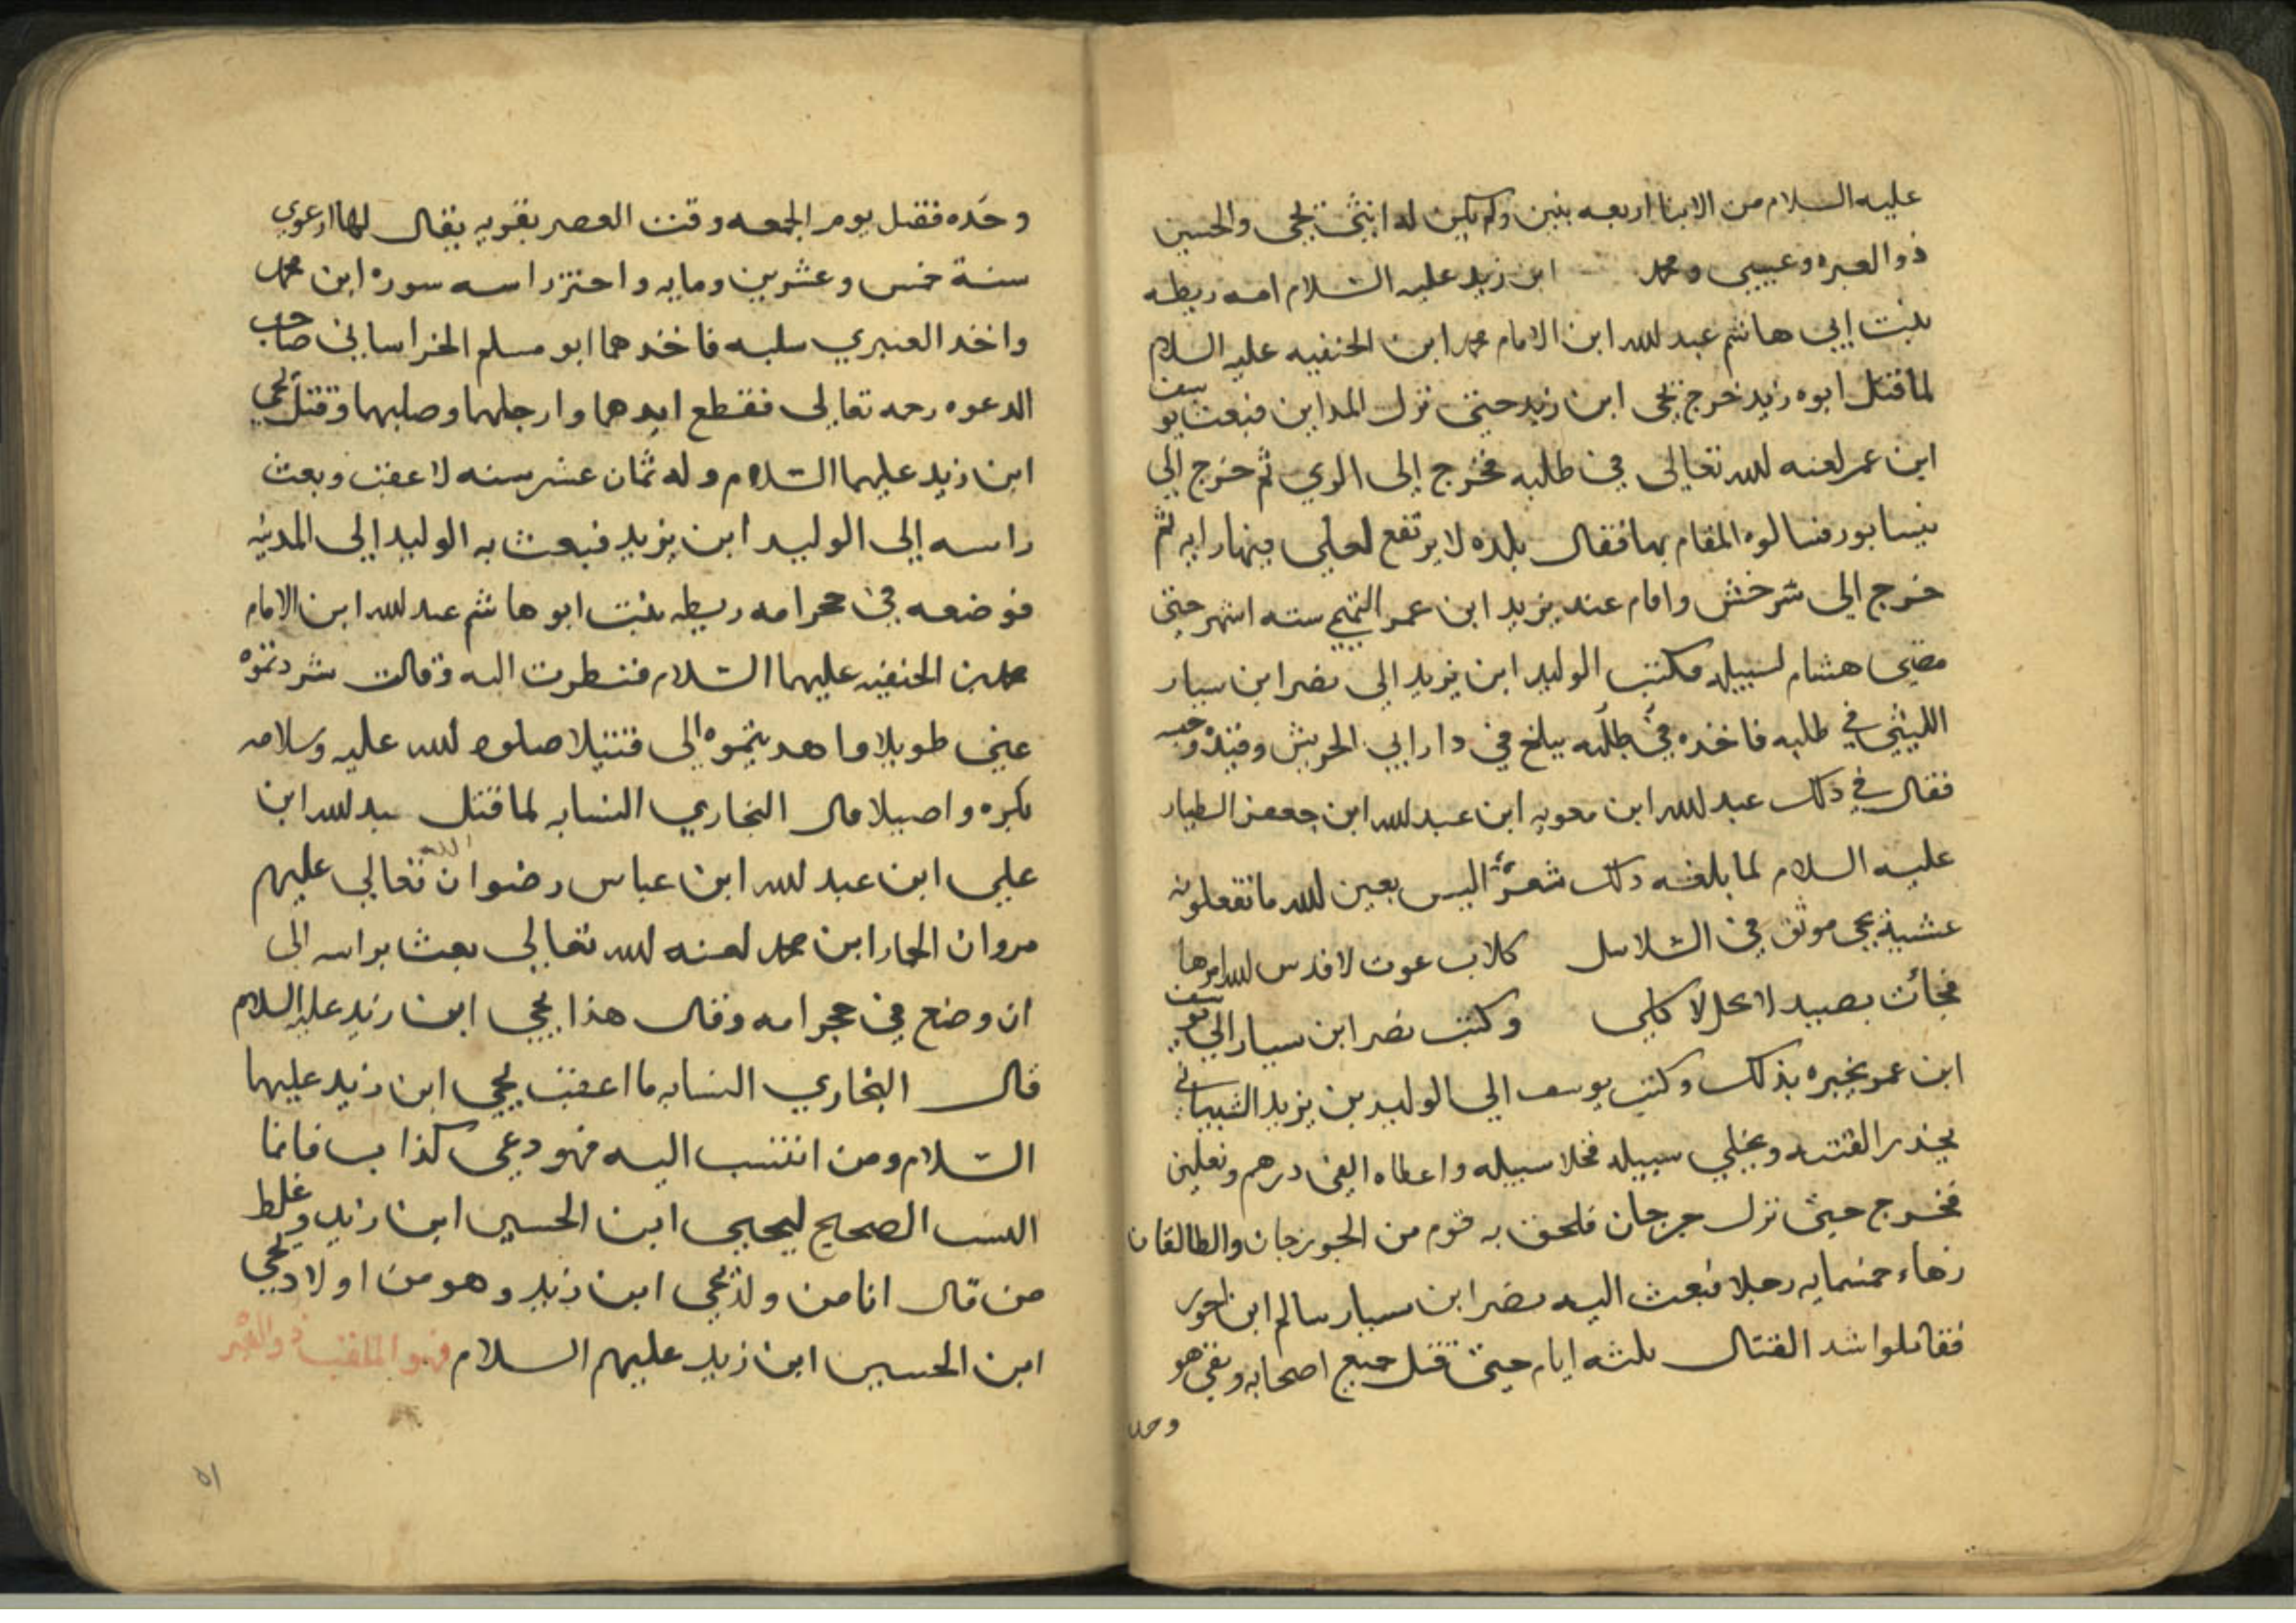 عليه السلام من الابنا اربعه بنين ولم يكن له انثى يحيى والحسين
ذو العبره وعيسى ومحمد ابن زيد عليه السلام امه ريطه
بنت ابي هاشم عبد لله ابن الامام محمد ابن الحنفيه عليه السلام
لما قتل ابوه زيد خرج يحيى ابن زيد حتى نزل المداين فبعث يوسف
ابن عمر لعنه لله تعالى في طلبه فخرج إلى الري ثم خرج إلي
نيسابور فسالوه المقام بها فقال بلده لا يرتفع لعلي فيها رايه ثم
خرج الي سرخس واقام عند يزيد ابن عمر التميمي سته اشهر حتى
مضى هشام لسبيله فكتب الوليد ابن يزيد الي نصر ابن سيار
الليثي في طلبه فاخذه في طلبه ببلخ في دار ابي الحريش وقيده وحبسه
فقال في ذلك عبد لله ابن معويه ابن عبد لله ابن جعفر الطيار
عليه السلام لما بلغه ذلك شعرًا اليس بعين لله ما تفعلونه
عشية يحيى موثق في السلاسل كلاب عوت لا قدس لله امرها
فجأت بصيد لا يحل لاكلي وكتب نصر ابن سيار الي يوسف
ابن عمر يخبره بذلك وكتب يوسف الي الوليد بن يزيد الشيباني
يحذر الفتنه ويخلي سبيله فخلا سبيله واعطاه الفي درهم ونعلين
فخرج حتى نزل جرجان فلحق به قوم من الجوزجان والطالقان
زهاء خمسمايه رجلا فبعث اليه نصر ابن سيار سالم ابن احور
فقاتلوا شد القتال ثلثه ايام حتى قتل جميع اصحابه وبقي هو
وحده
وحده فقتل يوم الجمعه وقت العصر بقويه يقال لها ارعوي
سنة خمس وعشرين ومايه واحتز راسه سوره ابن محمد
واخذ العنبري سلبه فاخذهما ابو مسلم الخراساني صاحب
الدعوه رحمه تعالى فقطع ايدهما وارجلهما وصلبهما وقتل يحيى
ابن زيد عليهما السلام وله ثمان عشر سنه لا عقب وبعث
راسه إلى الوليد ابن يزيد فبعث به الوليد إلى المدينه
فوضعه في حجر امه ريطه بنت ابو هاشم عبد لله ابن الامام
محمد بن الحنفيه عليهما السلام فنظرت اليه وقالت شردتموه
عني طويلا واهديتموه إلى قتيلا صلوه لله عليه وسلامه
بكره واصيلا قال البخاري النسابه لما قتل عبد لله ابن
علي ابن عبد لله ابن عباس رضوان الله تعالي عليهم
مروان الحمار ابن محمد لعنه لله تعالي بعث براسه الى
ان وضع في حجر امه وقال هذا يحيى ابن زيد عليه السلام
قال البخاري النسابه ما اعقب يحيى ابن زيد عليهما
السلام ومن انتسب اليه فهو دعي كذاب فانما
النسب الصحيح ليحيى ابن الحسين ابن زيد وغلط
من قال انا من ولد يحيى ابن زيد وهو من اولاد يحيى
ابن الحسين ابن زيد عليهم السلام فهو الملقب ذو العبر
٥١